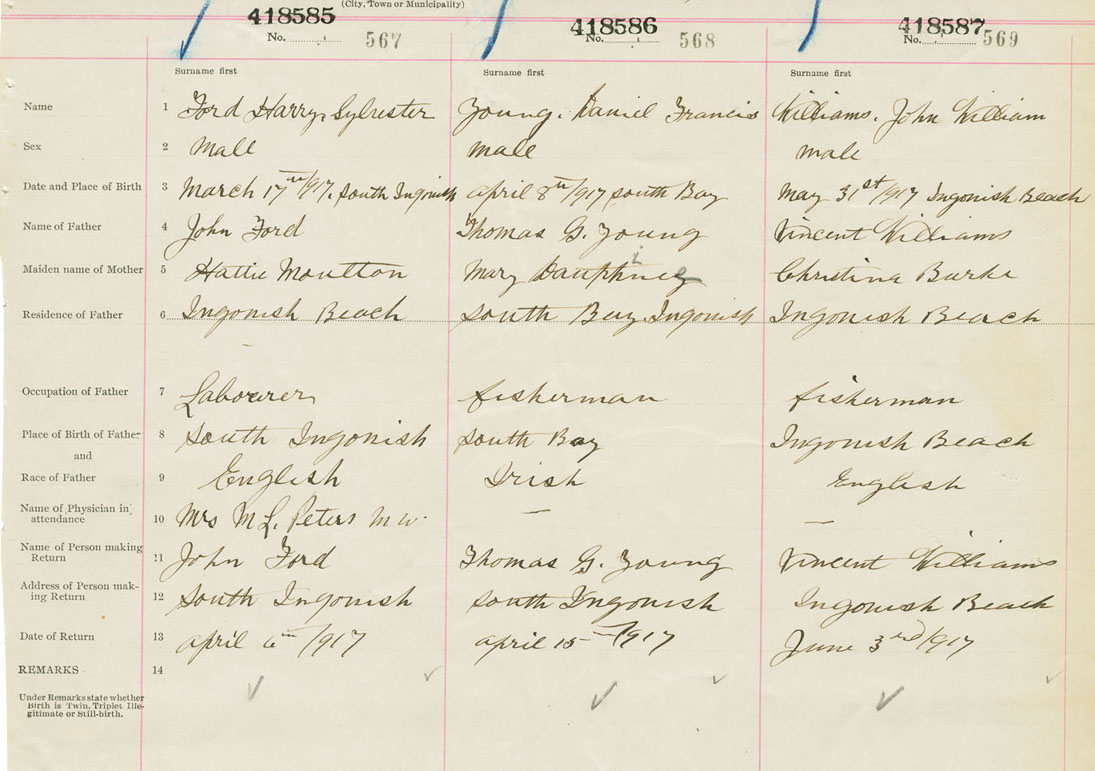 (City, Town or Municipality)
418585 418586 418587
No. 567 No. 568 No. 569
Surname first Surname first Surname first
Name 1 Ford Harry, Sylvester Young. Daniel Francis Williams. John William
Sex 2 Male male male
Date and Place of Birth 3 March 17th/917. South Ingonish april 8th/917 South Bay May 31st/917 Ingonish Beach
Name of Father 4 John Ford Thomas G. Young Vincent Williams
Maiden name of Mother 5 Hattie Moulton Mary Dauphinee Christina Burke
Residence of Father 6 Ingonish Beach South Bay Ingonish Ingonish Beach
Occupation of Father 7 Labourer fisherman fisherman
Place of Birth of Father 8 South Ingonish South Bay Ingonish Beach
and
Race of Father 9 English Irish English
Name of Physician in
attendance 10 Mrs M L. Peters M W. — —
Name of Person making
Return 11 John Ford Thomas G. Young Vincent Williams
Address of Person mak-
ing Return 12 South Ingonish South Ingonish Ingonish Beach
Date of Return 13 april 6th/1917 april 15—/1917 June 3rd/1917
REMARKS 14
Under Remarks state whether
Birth is Twin, Triplet Ille-
gitimate or Still-birth.